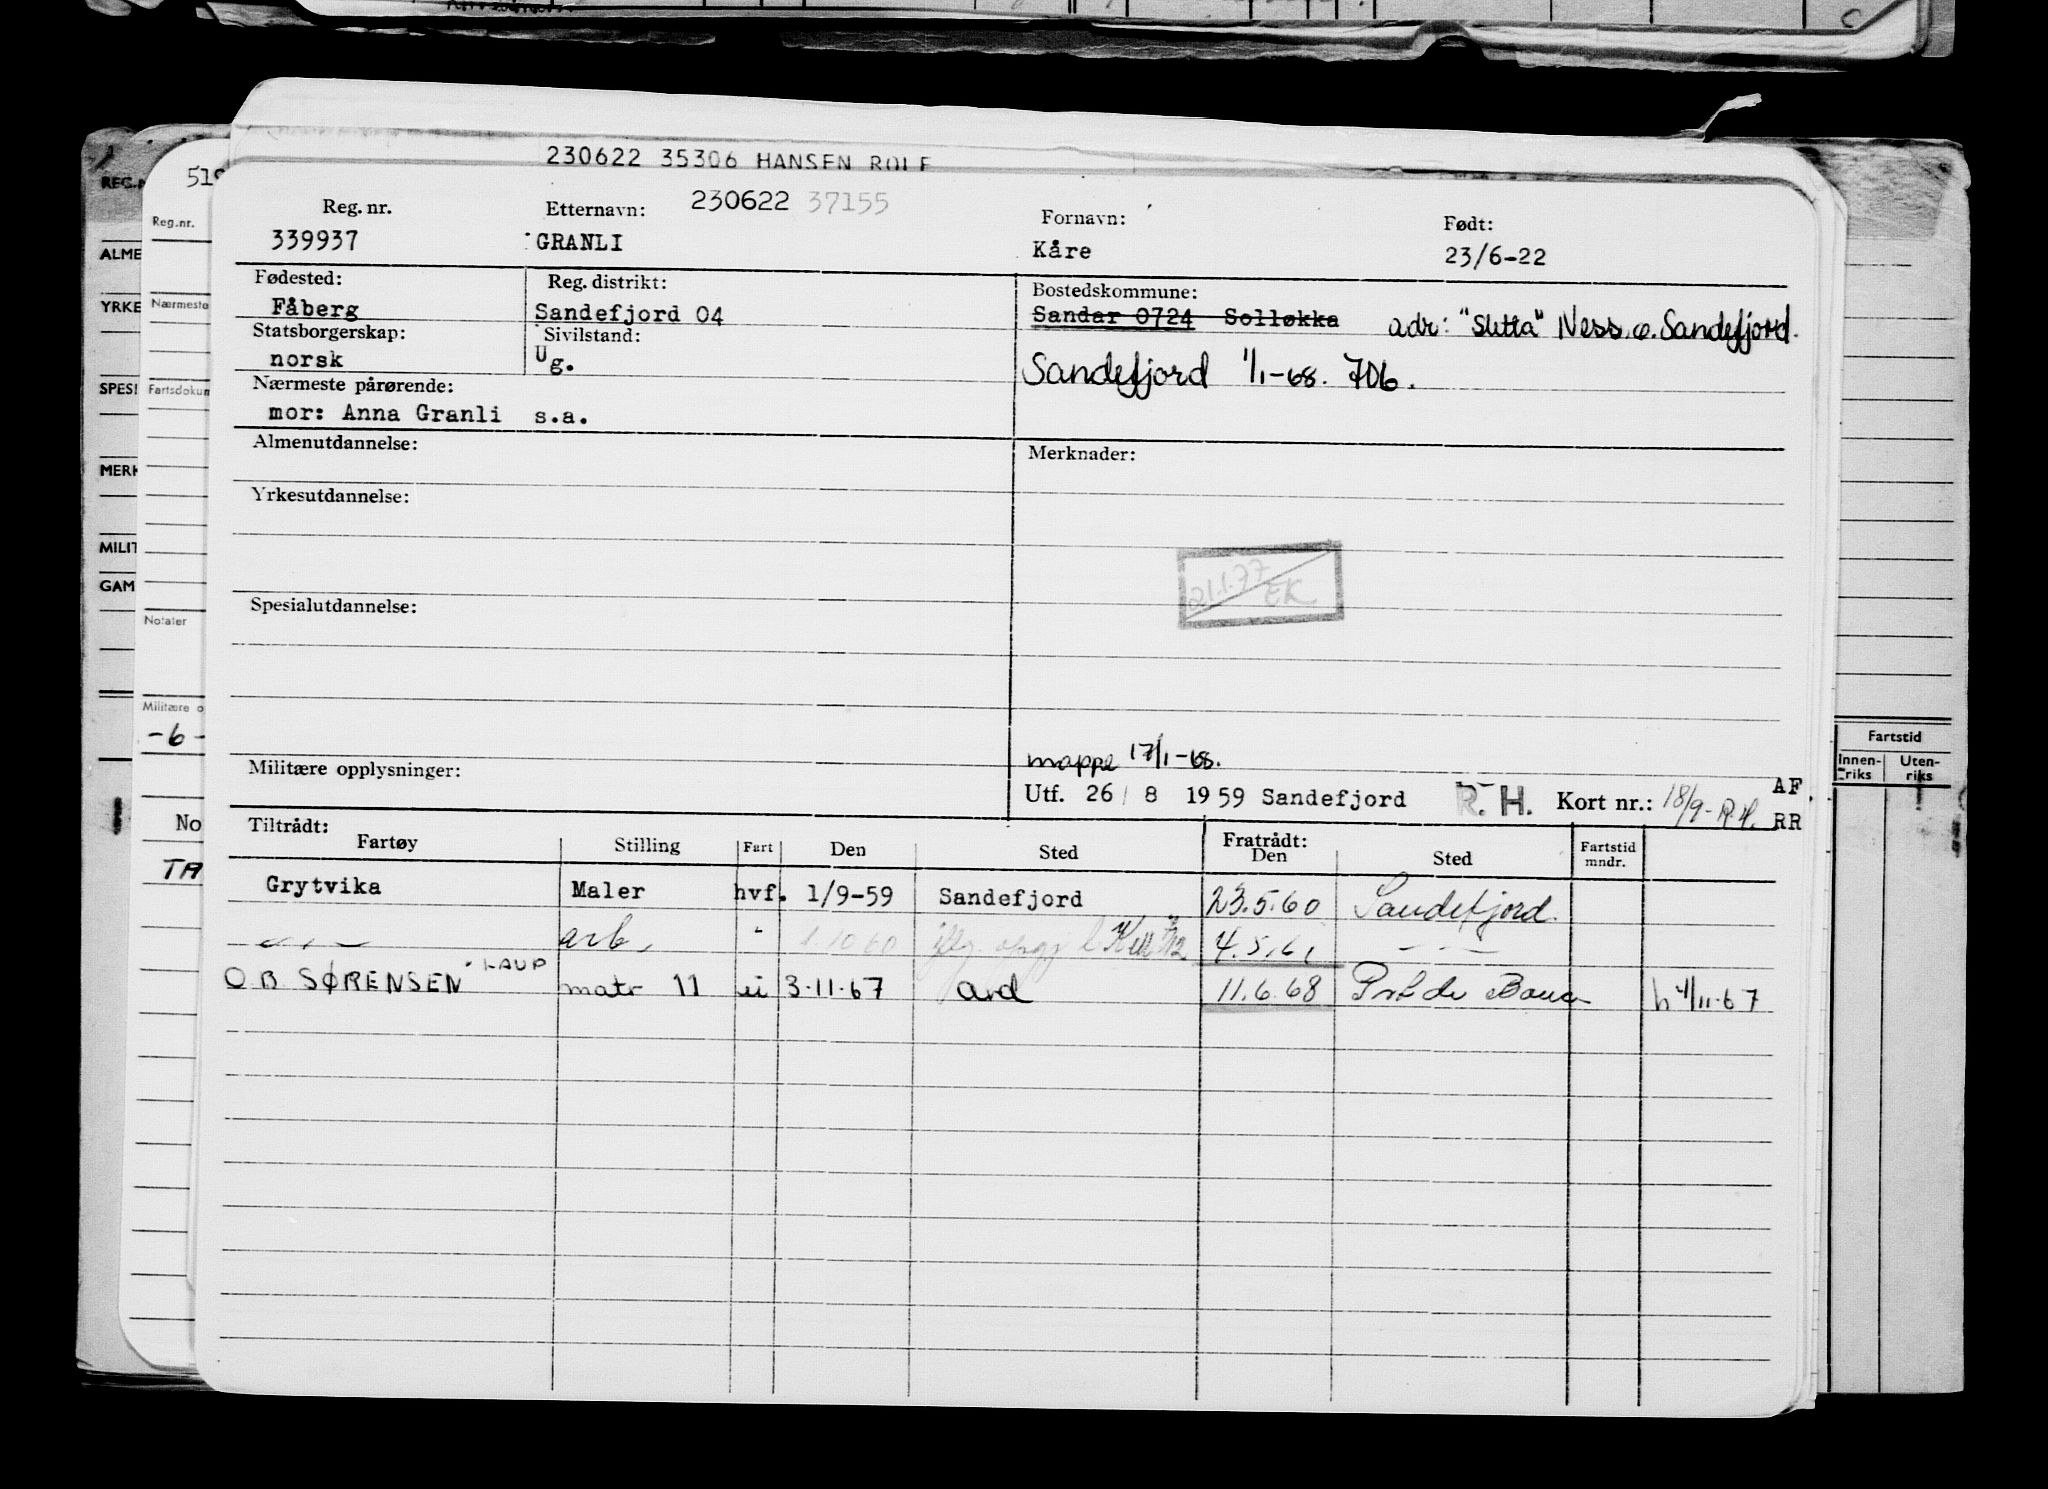 230622 35306 HANSEN ROLF
REG.N
519
Reg.nr.
ALME
Nærmeste
YRKE
SPESI
Fartsdokum
MERK
MILIT
GAM
Notater
Militære o
-6-
No
TA
Reg. nr. Etternavn: 230622 37155 Fornavn: Født:
339937 GRANLI Kåre 23/6-22
Fødested: Reg. distrikt: Bostedskommune:
Fåberg Sandefjord 04 Sandar 0724 Solløkka adr: "Sletta" Ness. Sandefjord.
Statsborgerskap: Sivilstand:
norsk Ug. Sandefjord 1/1-68. 706.
Nærmeste pårørende:
mor: Anna Granli s.a.
Almenutdannelse: Merknader:
Yrkesutdannelse:
21.1.77 EK
Spesialutdannelse:
mappe 17/1-68.
Militære opplysninger: Utf. 26/8 1959 Sandefjord R. H. Kort nr.: 18/9-R.H. AF.
RR
Tiltrådt: Fratrådt:
Fartøy Stilling Fart Den Sted Den Sted Fartstid mndr.
Grytvika Maler hvf. 1/9-59 Sandefjord 23.5.60 Sandefjord.
— " — arb. " 1.10 60 iflg. oppg 4.5.61 — " —
O B SØRENSEN LAUP matr 11 ui 3.11.67 ard 11.6.68 Prt de Bouc h 4/11.67
Fartstid
Innen-riks Uten-riks